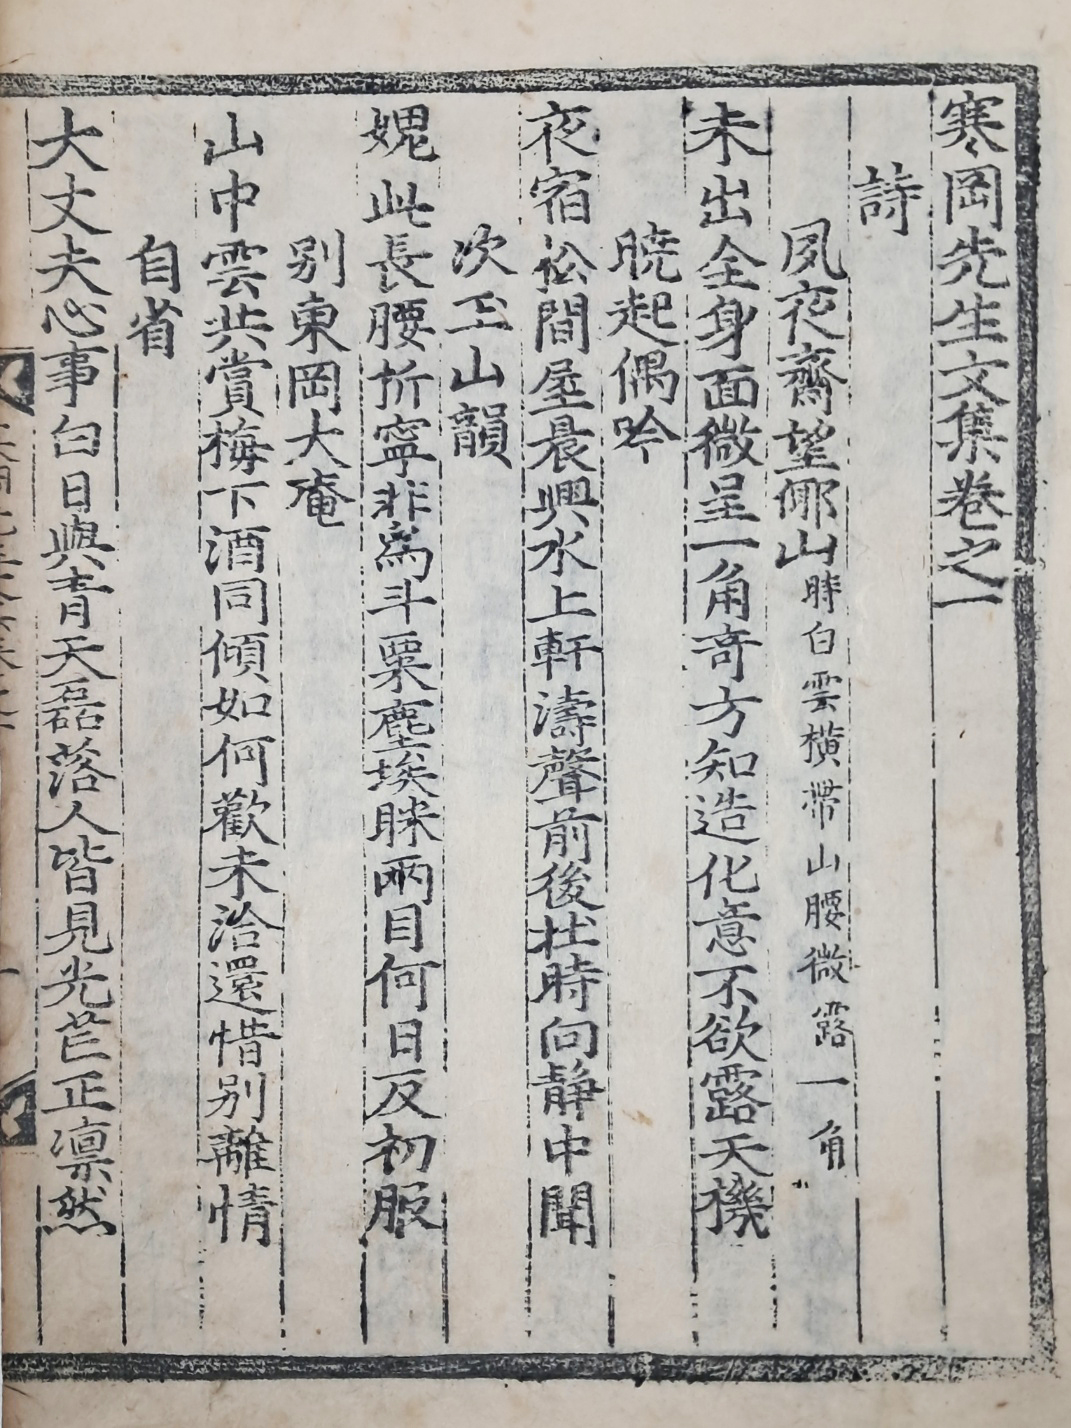 寒岡先生文集卷之一
詩
夙夜齋望倻山時白雲橫帶山腰微露一角
未出全身面微呈一角奇方知造化意不欲露天機
曉起偶吟
夜宿松間屋晨興水上軒濤聲前後壯時向静中聞
次玉山韻
媿此長腰折寧非爲斗粟塵埃眯兩目何日反初服
别東岡大庵
山中雲共賞梅下酒同傾如何歡未洽還惜别離情
自省
大丈夫心事白日與青天磊落人皆見光芒正凛然